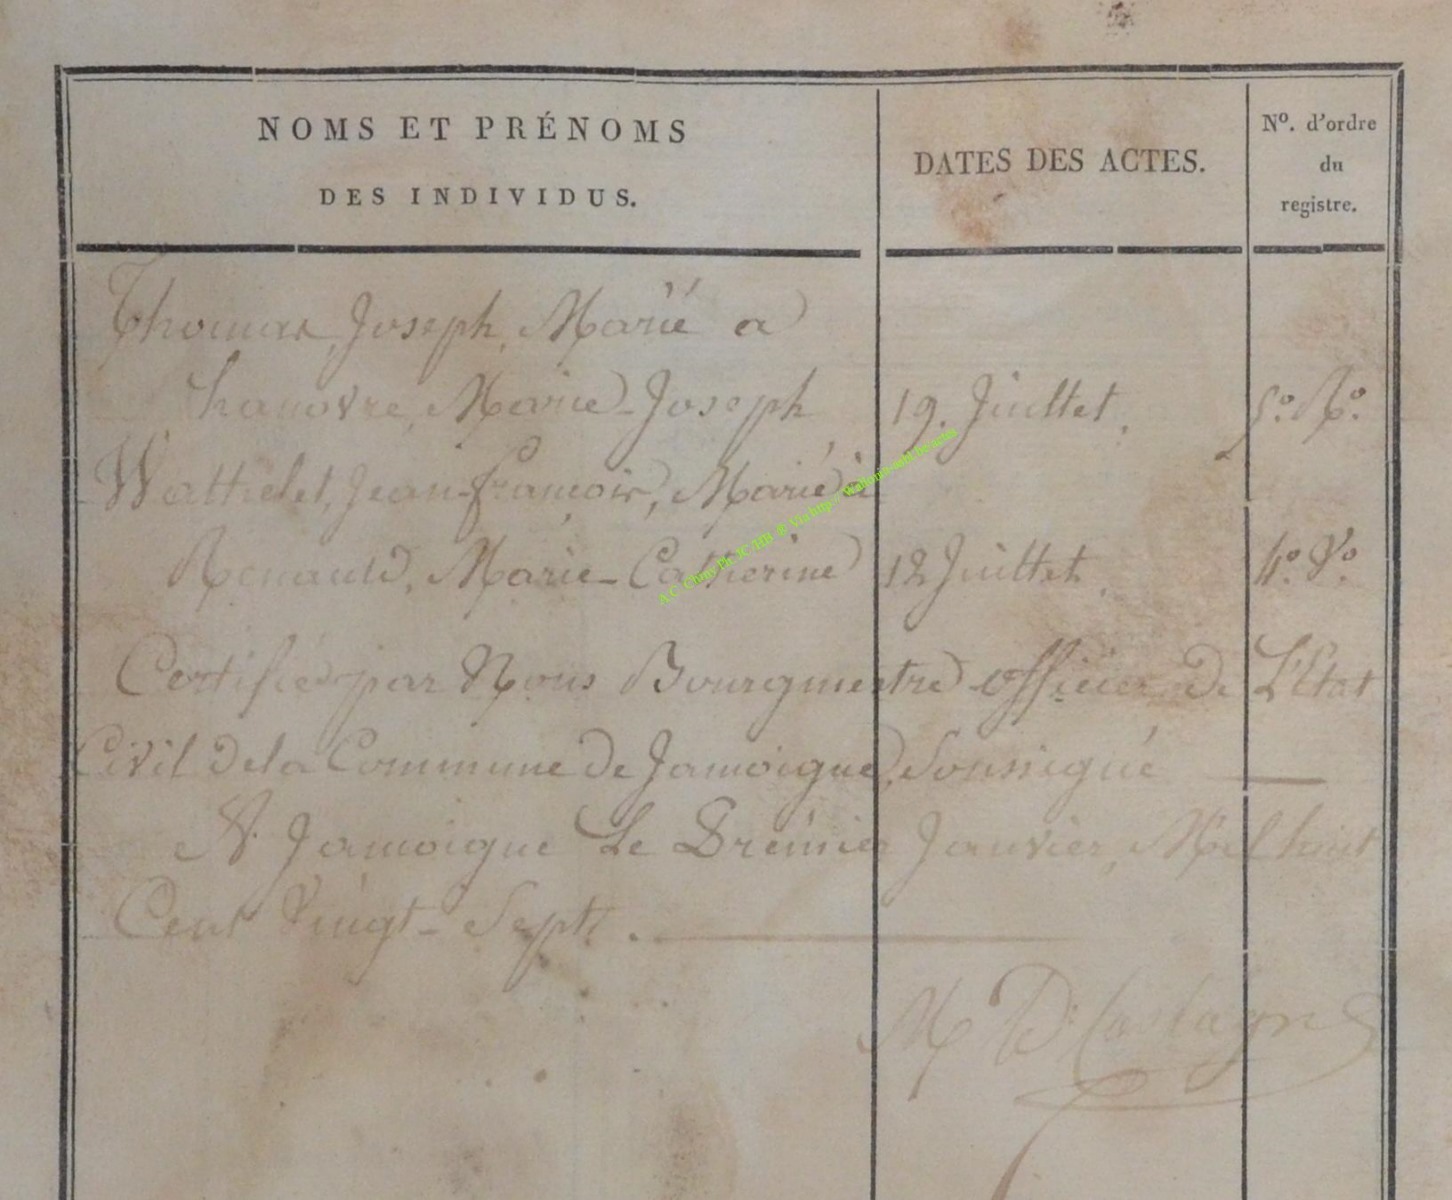 NOMS ET PRÉNOMS
DES INDIVIDUS.
DATES DES ACTES.
Nº. d'ordre
du
registre.
Thomas, Joseph, Marié a
hanovre, Marie-Joseph 19. Juillet. 5º. Rº.
Watthelet, Jean-françois, Marié à
Renauld, Marie-Catherine 12 Juillet. 4º. Vº.
Certifié par Nous Bourgmestre officier de L'Etat
Civil de la Commune de Jamoigne, Soussigné
A Jamoigne Le Premier Janvier, Mil huit
Cent Vingt-Sept.
M D